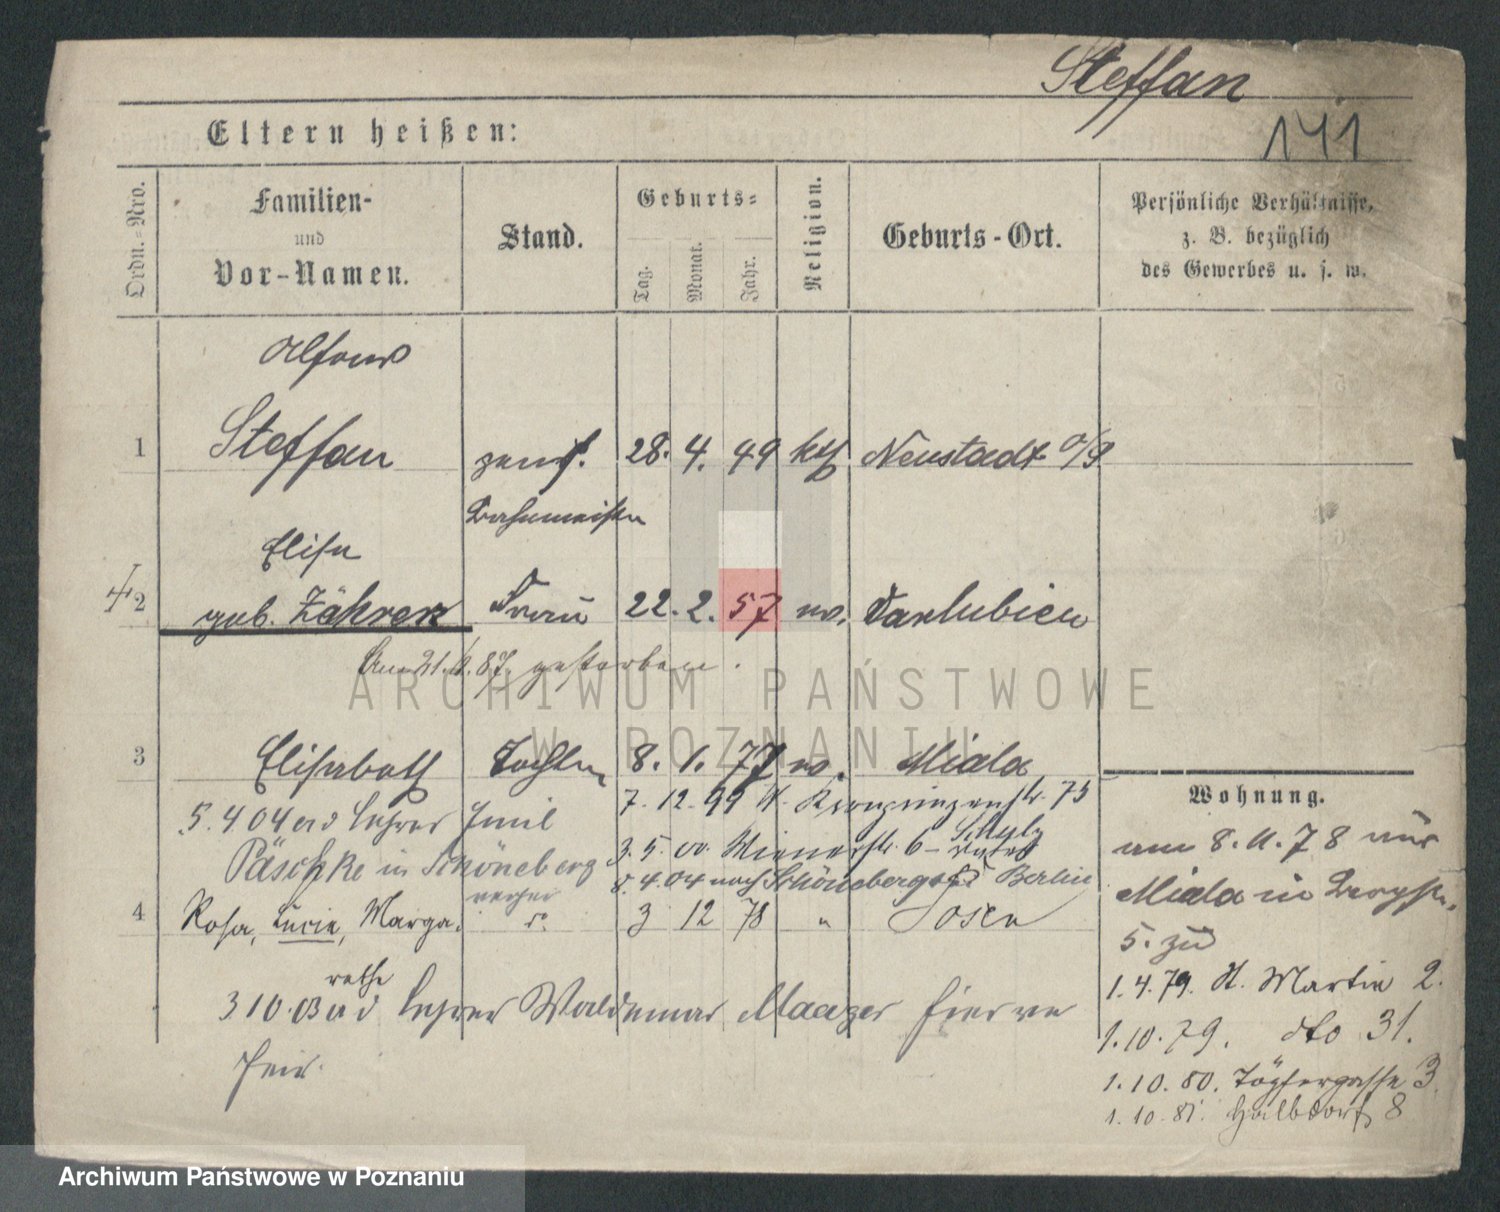 Steffan
141
Eltern heißen:
Ordn.-Nro.
Familien-
und
Vor-Namen.
Stand.
Geburts-
Tag.
Monat.
Jahr.
Religion.
Geburts-Ort.
Persönliche Verhältnisse,
z. B. bezüglich
des Gewerbes u. s. w.
Alfons
1 Steffan pens. 28. 4. 49 kth Neustadt O/S.
Bahnmeister
Elise
2 geb. Zährer Frau 22. 2. 57 w. Tarlubien
Am 21. 87 gestorben.
ARCHIWUM PAŃSTWOWE
W POZNANIU
3 Elisabeth Tochter 8. 1. 77 w. Miala
7. 12. 99 Kronprinzenstr. 75
5. 4. 04 Lehrer Emil
3. 5. 00. Wienerstr. 6 -
Päschke in Schöneberg
8. 4. 04 nach Schöneberg Berlin
4 Rosa, Lucie, Marga- 3 12 78 " Posen
rethe
3 10. 03 Lehrer Waldemar hier
Wohnung.
am 8. 11. 78 aus
Miala in
5. zu
1. 4. 79. St. Martin 2.
1. 10. 79. dto 31.
1. 10. 80. Töpfergasse 3
1. 10. 81. Halbdorf 8
Archiwum Państwowe w Poznaniu